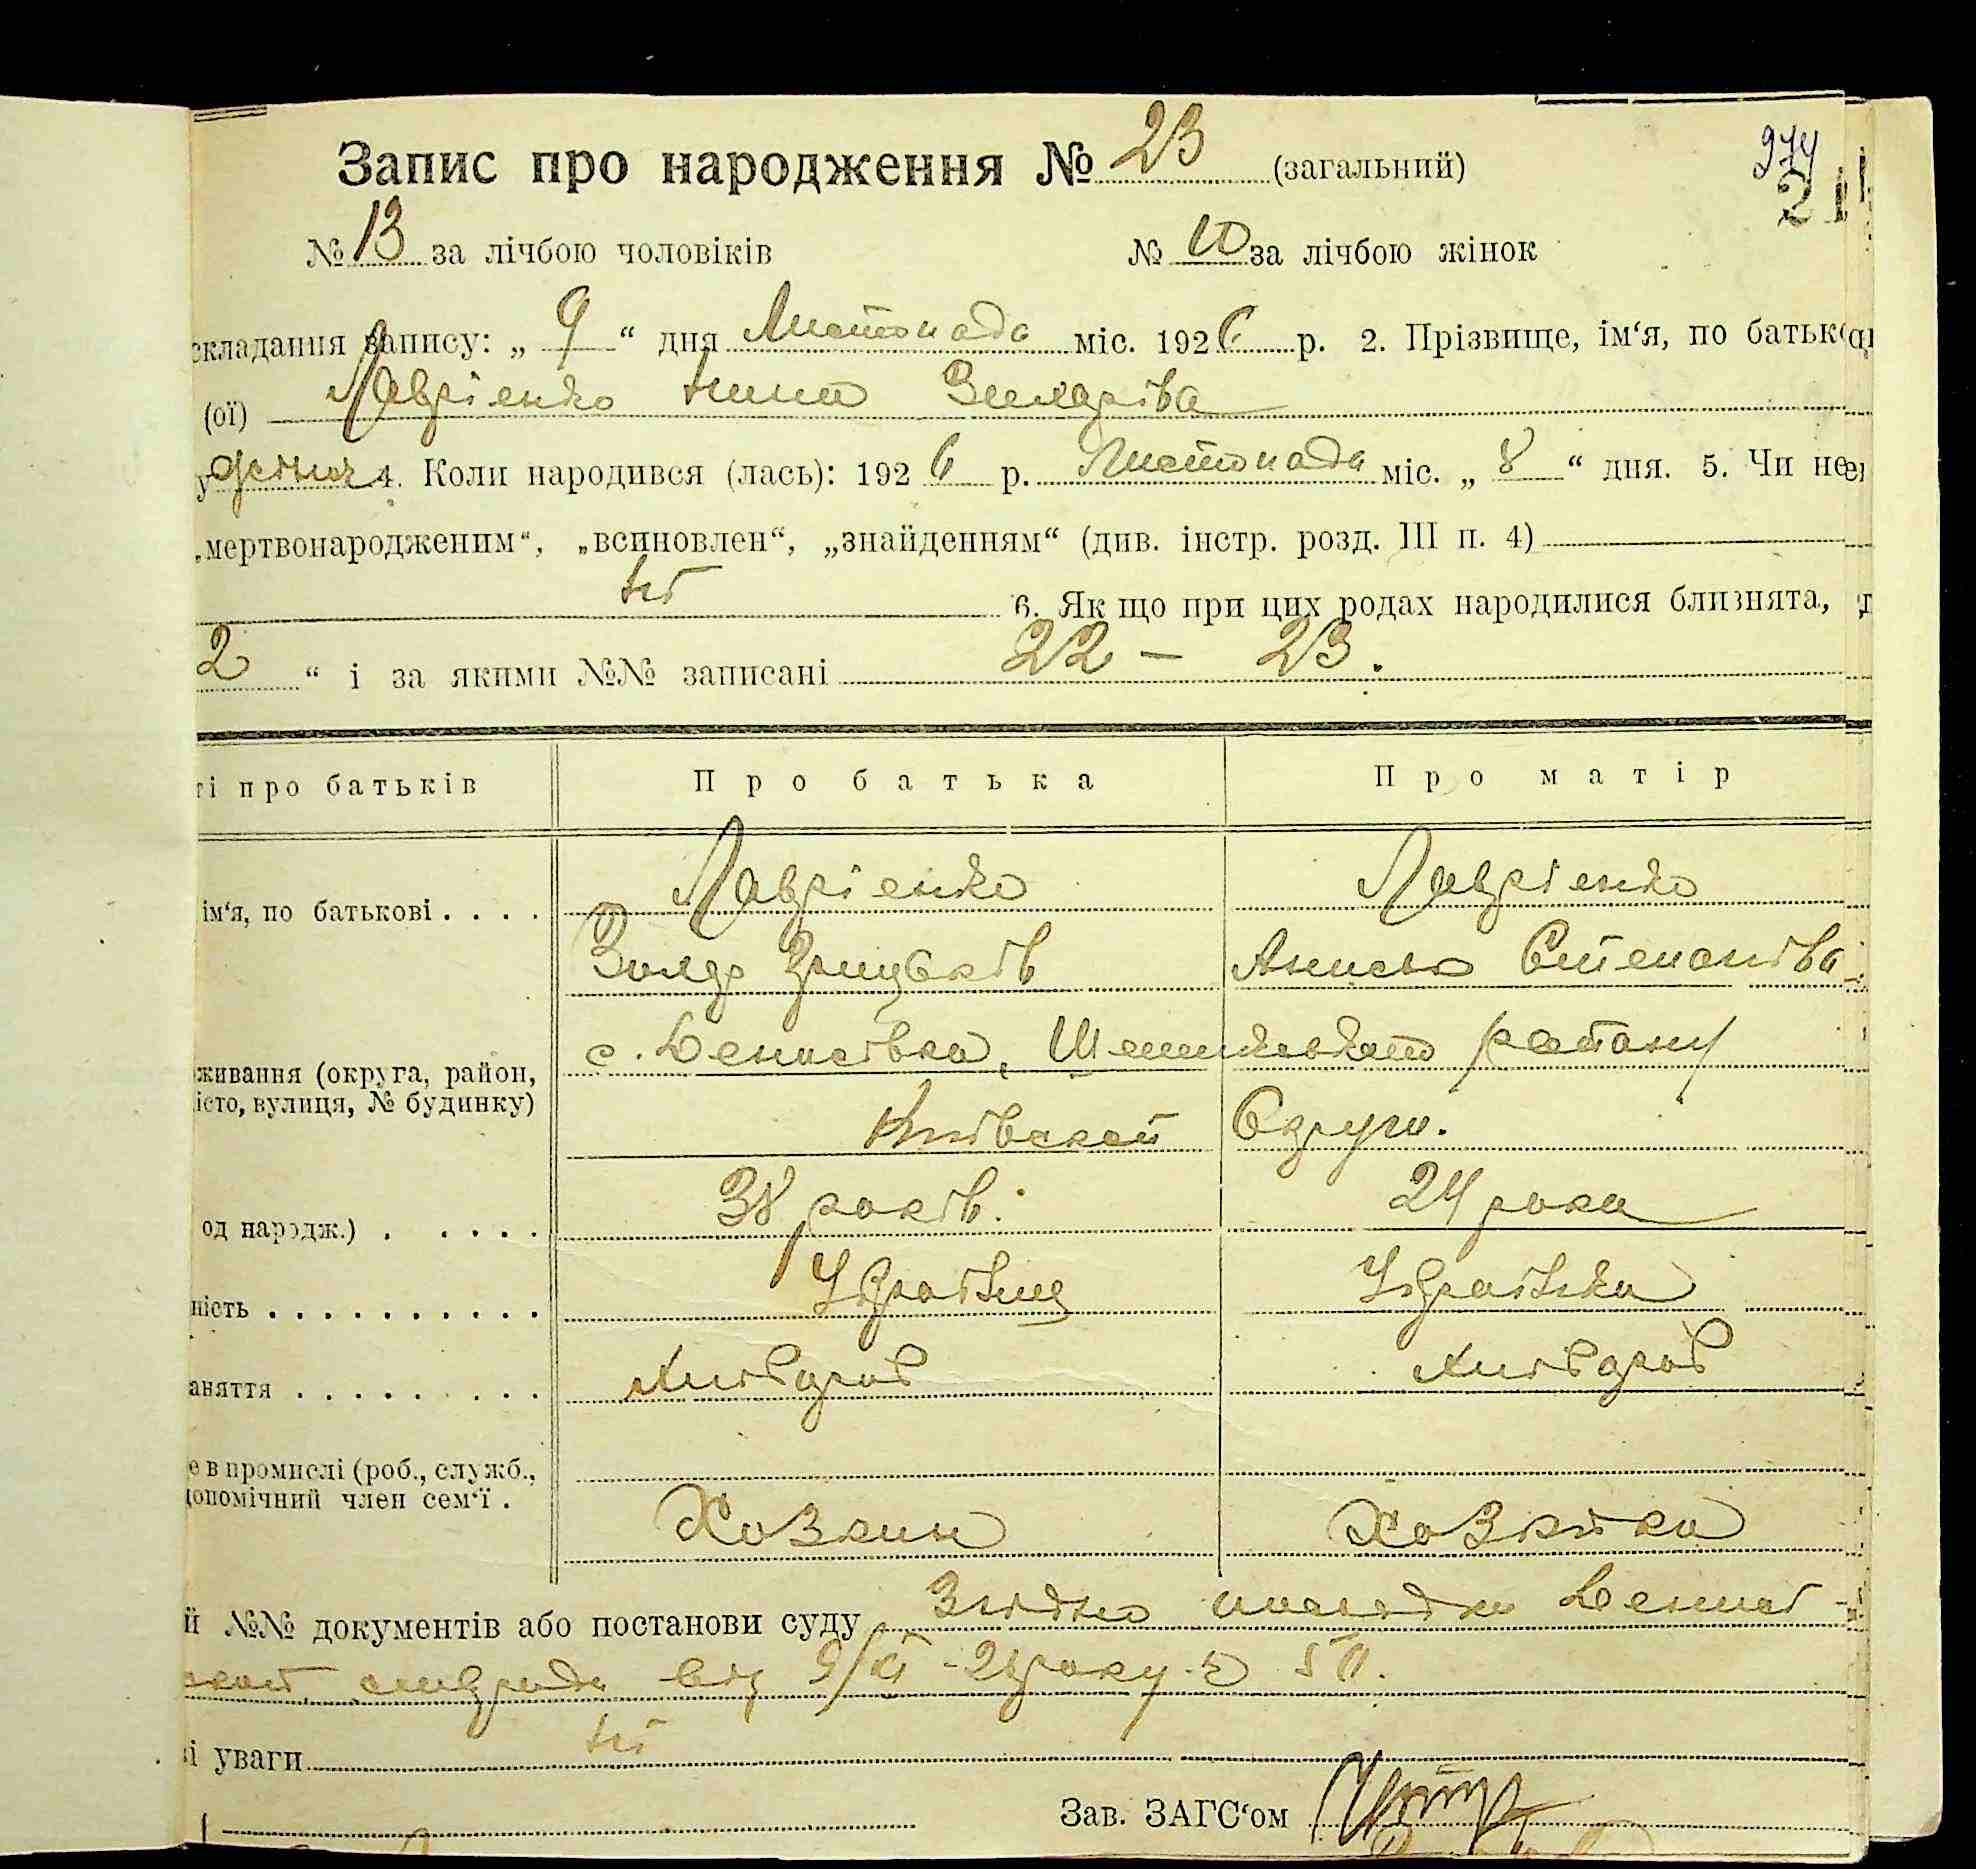 Запис про народження № 23 (загальний)
974
21
№ 13 за лічбою чоловіків № 10 за лічбою жінок
складання запису: „ 9 “ дня Листопада міс. 1926 р. 2. Прізвище, ім‘я, по батьков
(ої) Лаврієнко Нина Захарівa
4. Коли народився (лась): 1926 р. Листопада міс. „ 8 “ дня. 5. Чи не
„мертвонародженим“, „всиновлен“, „знайденням“ (див. інстр. розд. III п. 4)
Ні 6. Як що при цих родах народилися близнята,
2 “ і за якими №№ записані 22 – 23.
ті про батьків Про батька Про матір
ім‘я, по батькові Лаврієнко Лаврієнко
Грицьків Степанівa
с. Денисівка, району
живання (округа, район,
істо, вулиця, № будинку)
Київской Округи.
од народж.) 38 років. 24 роки
ність Українц Українка
аняття Хлібороб Хлібороб
е в промислі (роб., служб.,
допомічний член сем‘ї . Хозяин Хозяйка
й №№ документів або постанови суду Згідно
від 9/XI - 26 року
і уваги Ні
Зав. ЗАГС‘ом